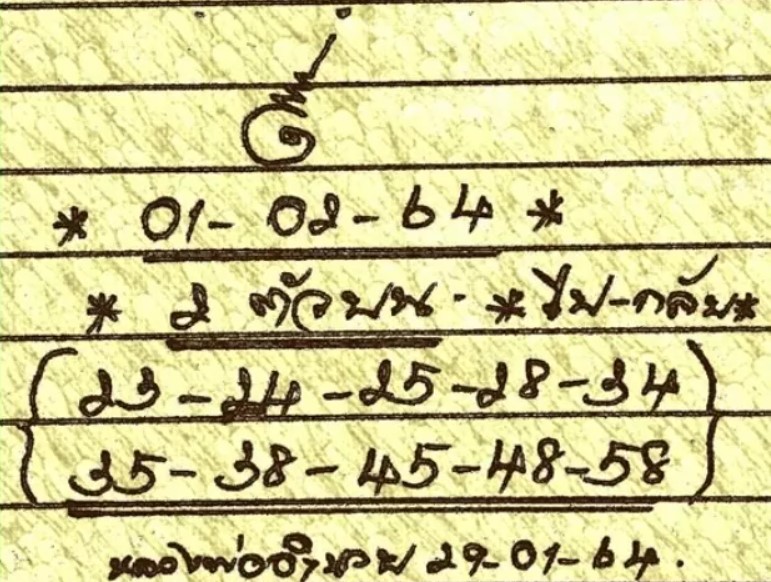 * 01-02-64 *
* 2 ตัวบน. *ไป-กลับ*
(23-24-25-28-34)
{35-38-45-48-58}
หลวงพ่ออำนวย 29-01-64.